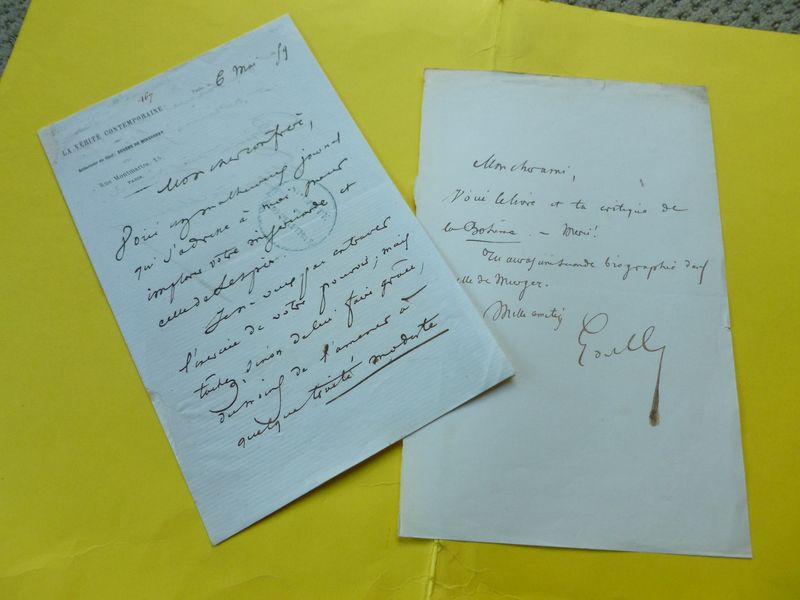 LA VÉRITÉ CONTEMPORAINE
Rédacteur en chef: EUGÈNE DE MIRECOURT
Rue Montmartre, 15
PARIS.
167
Paris, 6 Mai 59
Mon cher confrère,
Voici un malheureux journal
qui s'adresse à moi pour
implorer votre miséricorde et
celle de Lespès.
Je ne veux pas entraver
l'exercice de votre pouvoir, mais
tachez, sinon de lui faire grâce,
du moins de l'amener à
quelque traité modeste
Mon cher ami,
Voici le livre et ta critique de
la Bohême. — Merci!
Tu auras une grande biographie dans
celle de Murger.
Mille amitiés